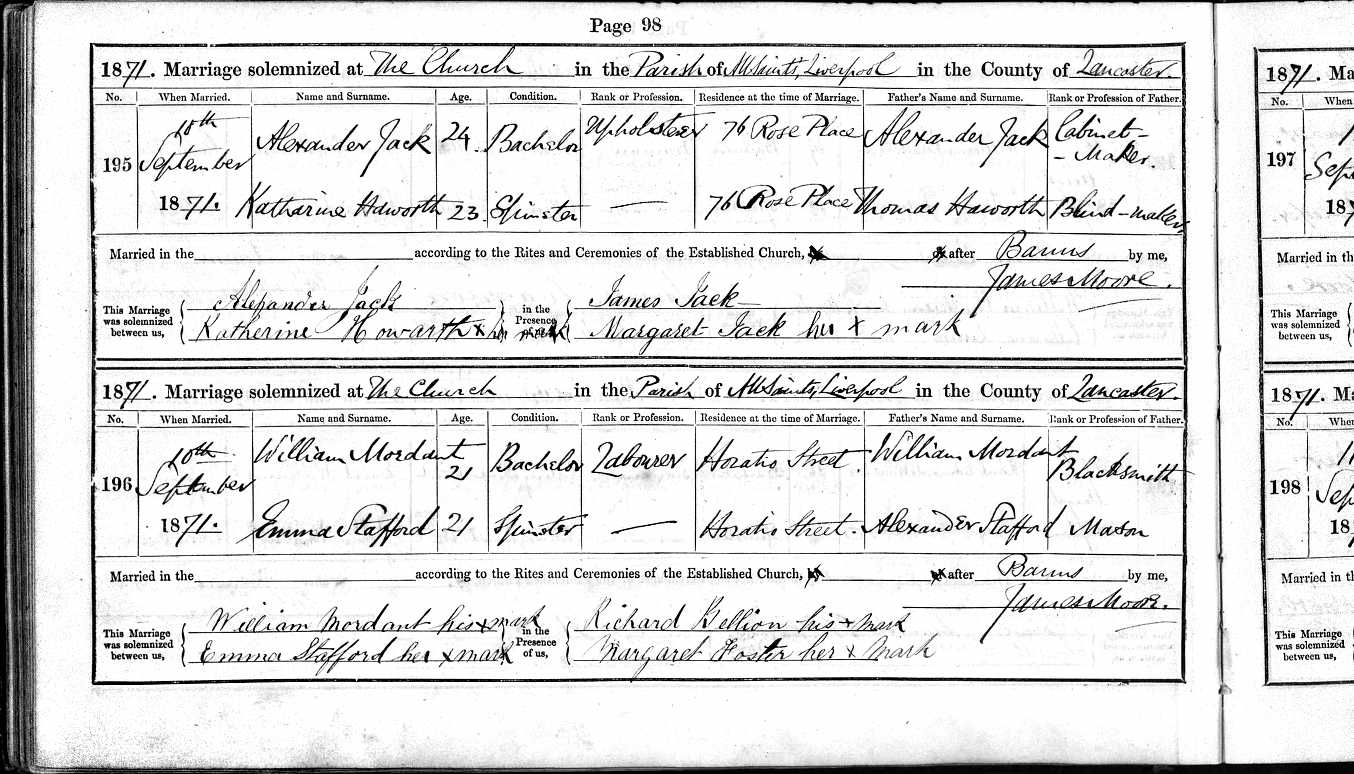 Page 98
1871. Marriage solemnized at The Church in the Parish of All Saints, Liverpool in the County of Lancaster.
No. When Married. Name and Surname. Age. Condition. Rank or Profession. Residence at the time of Marriage. Father's Name and Surname. Rank or Profession of Father.
195 10th September 1871. Alexander Jack 24. Bachelor Upholsterer 76 Rose Place Alexander Jack Cabinet-Maker.
Katharine Haworth 23. Spinster — 76 Rose Place Thomas Haworth Blind-maker.
Married in the according to the Rites and Ceremonies of the Established Church, after Banns by me,
James Moore.
This Marriage was solemnized between us, Alexander Jack in the Presence of us, James Jack
Katherine Howarth x her mark Margaret Jack her x mark
1871. Marriage solemnized at The Church in the Parish of All Saints, Liverpool in the County of Lancaster.
No. When Married. Name and Surname. Age. Condition. Rank or Profession. Residence at the time of Marriage. Father's Name and Surname. Rank or Profession of Father.
196 10th September 1871. William Mordant 21 Bachelor Labourer Horatio Street. William Mordant Blacksmith
Emma Stafford 21 Spinster — Horatio Street. Alexander Stafford Mason
Married in the according to the Rites and Ceremonies of the Established Church, after Banns by me,
James Moore.
This Marriage was solemnized between us, William Mordant his x mark in the Presence of us, Richard Bellion his x mark
Emma Stafford her x mark Margaret Foster her x mark
1871. Ma
No. When
197
Sept
18
Married in the
This Marriage was solemnized between us,
1871. Ma
No. When
198
Sep
18
Married in th
This Marriage was solemnized between us,